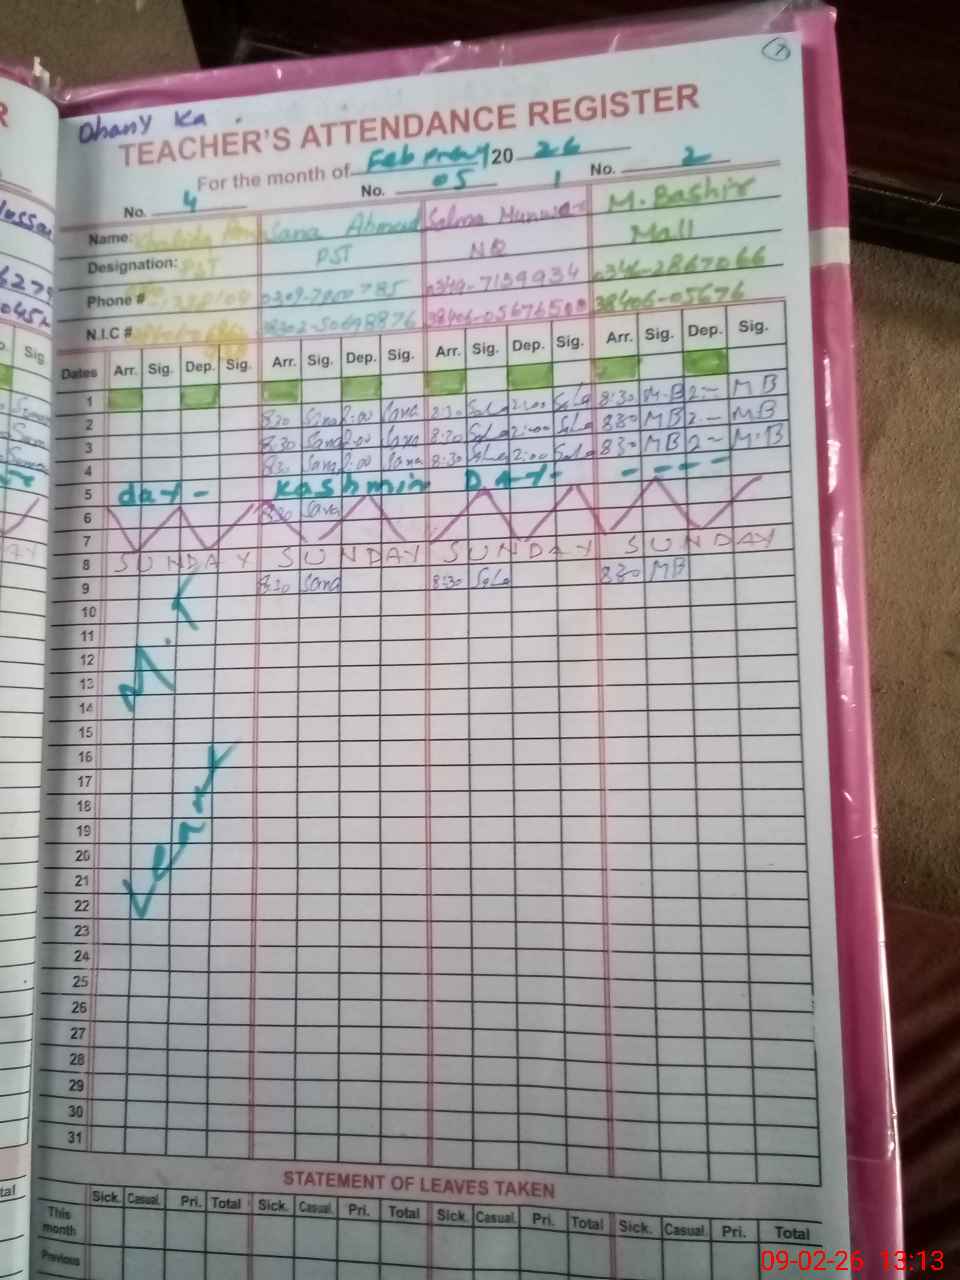 Dhany Ka
TEACHER'S ATTENDANCE REGISTER
For the month of February 20 26
No. 4 No. 05 No. 2
1
Name: Sana Ahmed Salma Munwar M. Bashir
Designation: PST PST NQ Mali
Phone # 0349-7159934 0346-2867066
N.I.C # 38406-05676
Dates Arr. Sig. Dep. Sig. Arr. Sig. Dep. Sig. Arr. Sig. Dep. Sig. Arr. Sig. Dep. Sig.
1
2 8:30 Sana 2:00 Sana 8:30 Sala 2:00 Sala 8:30 M.B 2- MB
3 8:30 Sana 2:00 Sana 8:30 Sala 2:00 Sala 8:30 MB 2- MB
4 8:30 Sana 2:00 Sana 8:30 Sala 2:00 Sala 8:30 MB 2- M.B
5 day - Kashmir DAY- - - - -
6 8:30 Sana
7
8 SUNDAY SUNDAY SUNDAY SUNDAY
9 8:30 Sana 8:30 Sala 8:30 MB
10
11
12
13
14
15
16
17
18
19
20
21
22
23
24
25
26
27
28
29
30
31
STATEMENT OF LEAVES TAKEN
Sick. Casual. Pri. Total Sick. Casual. Pri. Total Sick. Casual. Pri. Total Sick. Casual Pri. Total
This month
Previous
09-02-26 13:13